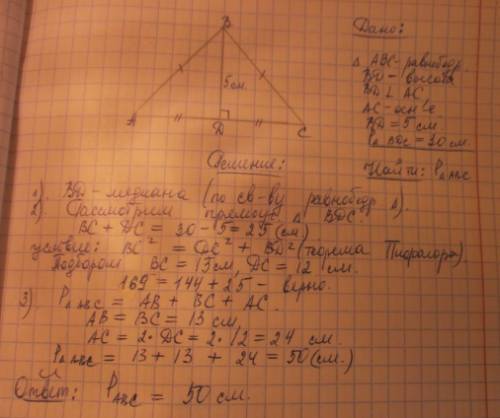 B
5см.
A
D
C
Дано:
Δ ABC - равнобедр.
BD - высота
BD ⊥ AC
AC - осн-е
BD = 5 см
P Δ BDC = 30 см.
Найти: P Δ ABC
Решение:
1). BD - медиана (по св-ву равнобедр Δ).
2) Рассмотрим прямоуг Δ BDC.
BC + DC = 30 - 5 = 25 (см)
условие: BC² = DC² + BD² (теорема Пифагора).
Подбором BC = 13 см, DC = 12 см.
169 = 144 + 25 - верно.
3) P Δ ABC = AB + BC + AC.
AB = BC = 13 см,
AC = 2 · DC = 2 · 12 = 24 см.
P Δ ABC = 13 + 13 + 24 = 50 (см.)
Ответ: P ABC = 50 см.